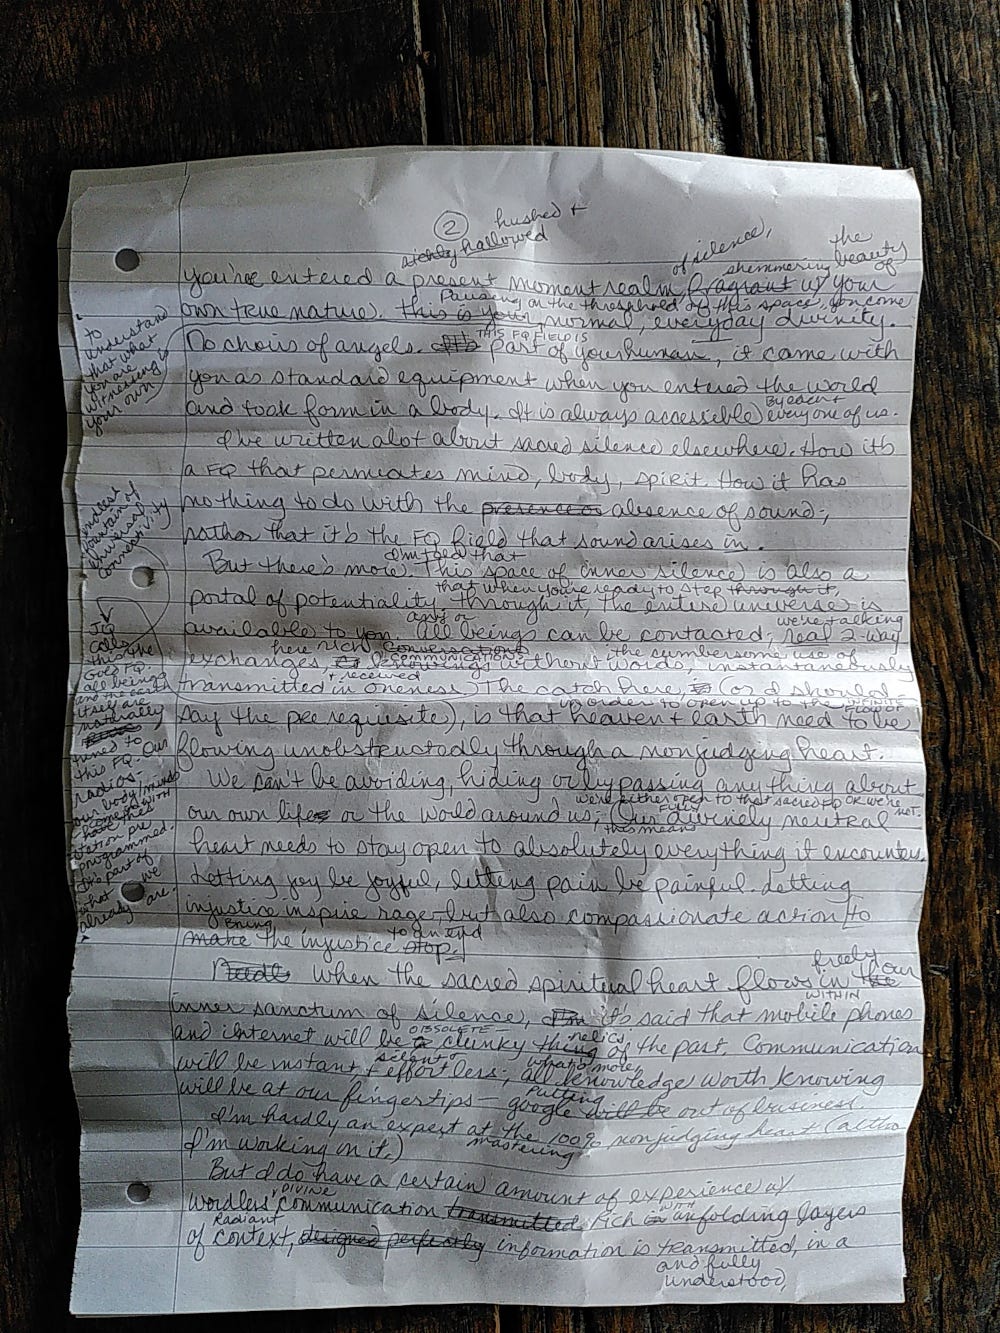 ②
hushed +
richly hallowed
of silence,
the
shimmering beauty
of
you've entered a present moment realm fragrant w/ your
Pausing on the threshold of this space, you come
own true nature. This is your normal, everyday divinity.
THIS FQ FIELD IS
No choirs of angels. part of your human, it came with
you as standard equipment when you entered the world
By each +
and took form in a body. It is always accessible everyone of us.
to
understand
that what
you are
witnessing is
your own
I've written alot about sacred silence elsewhere. How it's
a FQ that permeates mind, body, spirit. How it has
nothing to do with the presence or absence of sound;
rather that it's the FQ field that sound arises in.
I'm told that
But there's more. This space of inner silence is also a
that when you're ready to step through it,
portal of potentiality. through it, the entire universe is
any or
we're talking
available to you. All beings can be contacted; real 2-way
here rich conversations
the cumbersome use of
COMMUNICATIONS
exchanges without words, instantaneously
+ received
transmitted in oneness. The catch here, is (or I should
in order to open up to the INFINITE FLOW OF
say the prerequisite), is that heaven + earth need to be
flowing unobstructedly through a nonjudging heart.
endless
fountain of
universal
connectivity
JQ
calls
this the
God's FQ.
all beings
and the earth
itself are
naturally
tuned to
this FQ. Our
radios-
our body/minds
COMES WITH
have this
station pre
programmed.
It's part of
what we
already are.
We can't be avoiding, hiding or bypassing anything about
we're either open to that sacred FQ OR we're not.
FULLY
our own lives or the world around us; Our divinely neutral
this means
heart needs to stay open to absolutely everything it encounters.
Letting joy be joyful, letting pain be painful. Letting
injustice inspire rage–but also compassionate action [to
Bring
to an end
make the injustice stop.]
freely
our
When the sacred spiritual heart flows in the
WITHIN
inner sanctum of silence, I'm it's said that mobile phones
OBSOLETE–
relics
and internet will be a clunky thing of the past. Communication
silent
what's more,
will be instant + effortless; all knowledge worth knowing
putting
will be at our fingertips — google will be out of business.
I'm hardly an expert at the 100% nonjudging heart (altho
mastering
I'm working on it.)
But I do have a certain amount of experience w/
+ DIVINE
wordless communication transmitted. Rich in unfolding layers
WITH
Radiant
of context, designed perfectly information is transmitted, in a
and fully
understood,